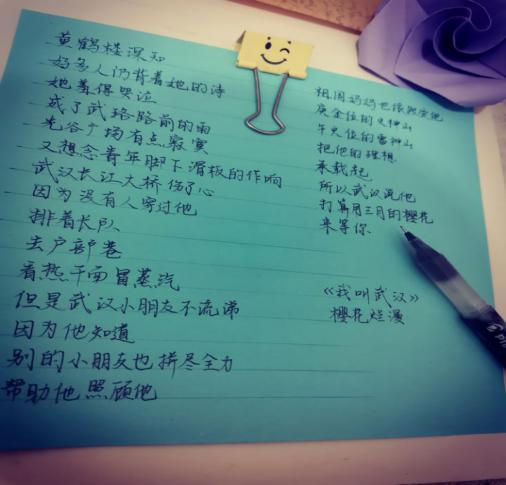 黄鹤楼深知
好多人仍背着她的诗
她羞得哭泣
成了武珞路前的雨
光谷广场有点寂寞
又想念青年脚下滑板的作响
武汉长江大桥伤了心
因为没有人穿过他
排着长队
去户部巷
看热干面冒蒸汽
但是武汉小朋友不流涕
因为他知道
别的小朋友也拼尽全力
帮助他照顾他
祖国妈妈也很照顾他
庚金位的火神山
午火位的雷神山
把他的理想
承载起
所以武汉说他
打算用三月的樱花
来等你
《我叫武汉》
樱花烂漫